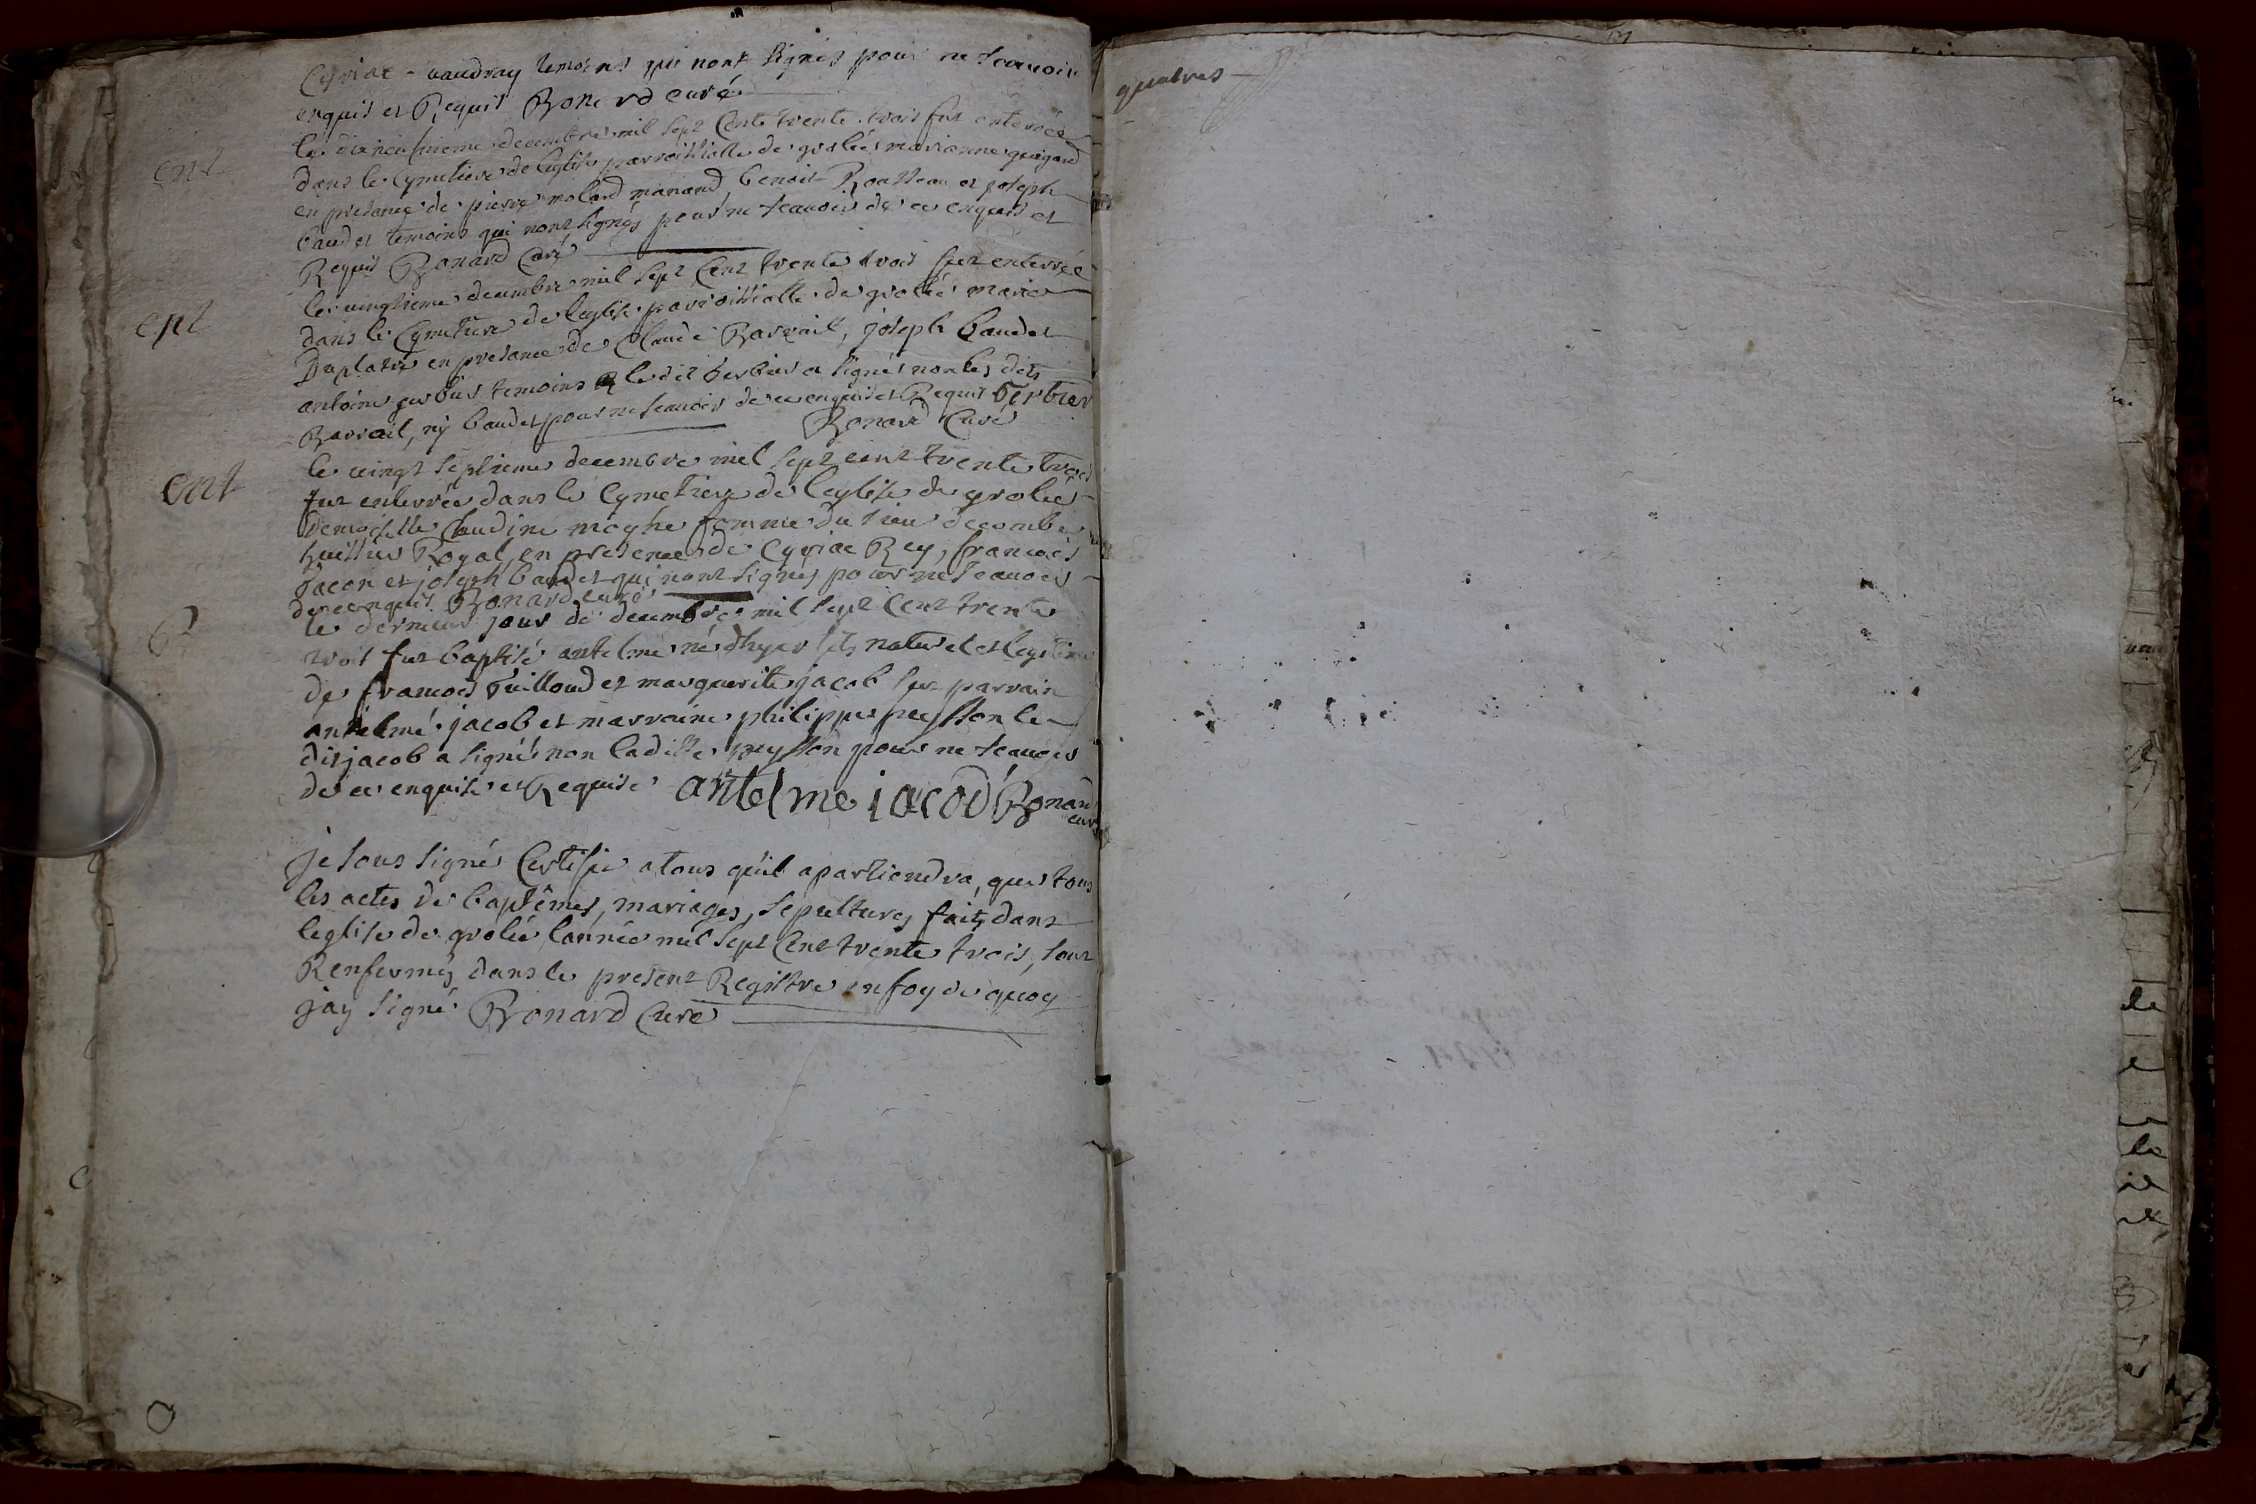 Cyriac vaudray temoins qui nont signés pour ne scavoir
enquis et Requis Bonard curé
le dixneufvieme decembre mil sept Cent trente trois fut enterrée
ent
dans le Cymetiere de leglise parroissialle de groleé marianne
en presance de pierre molard manand, benoit Rousseau et joseph
baudet temoins qui nont signés pour ne scavoir de ce enquis et
Requis Bonard Curé
le vingtieme decembre mil sept Cent trente trois fut enterrée
ent
dans le Cymetiere de leglise parroissialle de groleé marie
Duplatre en presance de Claude Ravail, joseph baudet
antoine gerbier temoins le dit berbier a signé non les dits
Ravail, ny baudet pour ne scavoir de ce enquis et Requis
Bonard Curé
le vingt septieme decembre mil sept cent trente trois
ent
fut enterrée dans le Cymetiere de leglise de groleé
demoiselle Claudine femme du sieur decombe
huissier Royal, en presence de Cyriac Rey, francois
jacon et joseph baudet qui nont signés pour ne scavoir
de ce enquis Bonard curé
le dernier jour de decembre mil sept Cent trente
B
trois fut baptisé antelme né dhyer fils naturel et legitime
de francois Guilloud et marguerite jacob fut parrain
antelme jacob et marraine philippe peysson le
dit jacob a signé non ladite peysson pour ne scavoir
de ce enquise et Requise antelme iacod Bonard
curé
je sous signé Certifie a tous quil apartiendra, que tous
les actes de baptêmes, mariages, sepultures faits dans
leglise de groleé lannée mil sept Cent trente trois, sont
Renfermés dans le present Registre en foy de quoy
jay signé Bonard Curé